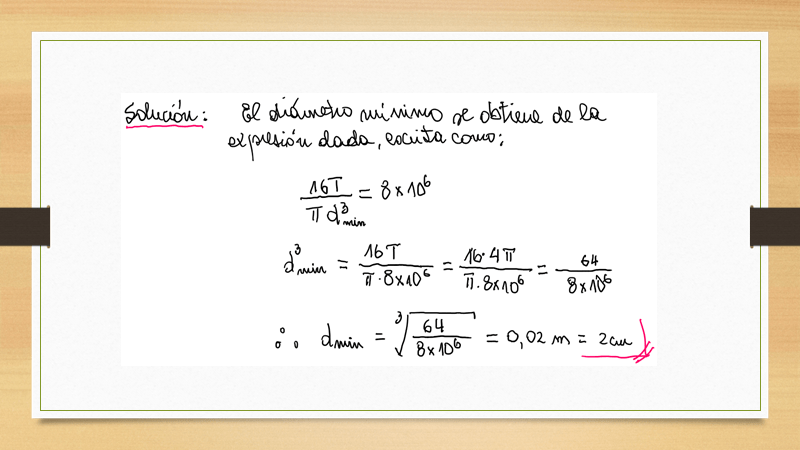 Solución: El diámetro mínimo se obtiene de la
expresión dada, escrita como:
16T / π d³min = 8×10⁶
d³min = 16T / π·8×10⁶ = 16·4π / π.8×10⁶ = 64 / 8×10⁶
∴ dmin = ³√(64 / 8×10⁶) = 0,02 m = 2cm